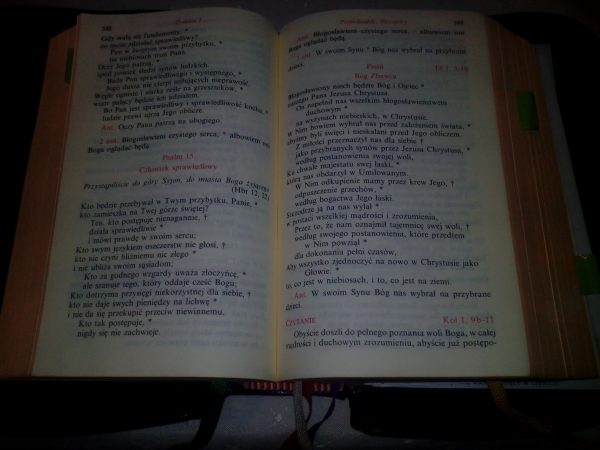 348
Tydzień I
Gdy walą się fundamenty, *
co może zdziałać sprawiedliwy?
Pan w świętym swoim przybytku, *
na niebiosach tron Pana.
Oczy Jego patrzą, *
spod powiek śledzi synów ludzkich.
Bada Pan sprawiedliwego i występnego, *
Jego dusza nie cierpi miłujących nieprawość.
Węgle ogniste i siarkę ześle na grzeszników, *
wiatr palący będzie ich udziałem.
Bo Pan jest sprawiedliwy i sprawiedliwość kocha, *
ludzie prawi ujrzą Jego oblicze.
Ant. Oczy Pana patrzą na ubogiego.
2 ant. Błogosławieni czystego serca, * albowiem oni
Boga oglądać będą.
Psalm 15
Człowiek sprawiedliwy
Przystąpiliście do góry Syjon, do miasta Boga żyjącego
(Hbr 12, 22)
Kto będzie przebywał w Twym przybytku, Panie, *
kto zamieszka na Twej górze świętej?
Ten, kto postępuje nienagannie, †
działa sprawiedliwie *
i mówi prawdę w swoim sercu;
Kto swym językiem oszczerstw nie głosi, †
kto nie czyni bliźniemu nic złego *
i nie ubliża swoim sąsiadom;
Kto za godnego wzgardy uważa złoczyńcę, *
ale szanuje tego, który oddaje cześć Bogu;
Kto dotrzyma przysięgi niekorzystnej dla siebie, †
kto nie daje swych pieniędzy na lichwę *
i nie da się przekupić przeciw niewinnemu.
Kto tak postępuje, *
nigdy się nie zachwieje.
Poniedziałek, Nieszpory
349
Ant. Błogosławieni czystego serca, * albowiem oni
Boga oglądać będą.
3 ant. W swoim Synu * Bóg nas wybrał na przybrane
dzieci.
Pieśń
Ef 1, 3-10
Bóg Zbawca
Błogosławiony niech będzie Bóg i Ojciec *
naszego Pana Jezusa Chrystusa.
On napełnił nas wszelkim błogosławieństwem
duchowym *
na wyżynach niebieskich, w Chrystusie.
W Nim bowiem wybrał nas przed założeniem świata, *
abyśmy byli święci i nieskalani przed Jego obliczem.
Z miłości przeznaczył nas dla siebie †
jako przybranych synów przez Jezusa Chrystusa, *
według postanowienia swojej woli,
Ku chwale majestatu swej łaski, *
którą nas obdarzył w Umiłowanym.
W Nim odkupienie mamy przez krew Jego, †
odpuszczenie grzechów, *
według bogactwa Jego łaski.
Szczodrze ją na nas wylał *
w postaci wszelkiej mądrości i zrozumienia,
Przez to, że nam oznajmił tajemnicę swej woli, †
według swojego postanowienia, które przedtem
w Nim powziął *
dla dokonania pełni czasów,
Aby wszystko zjednoczyć na nowo w Chrystusie jako
Głowie: *
to, co jest w niebiosach, i to, co jest na ziemi.
Ant. W swoim Synu Bóg nas wybrał na przybrane
dzieci.
CZYTANIE
Kol 1, 9b-11
Obyście doszli do pełnego poznania woli Boga, w całej
mądrości i duchowym zrozumieniu, abyście już postępo-